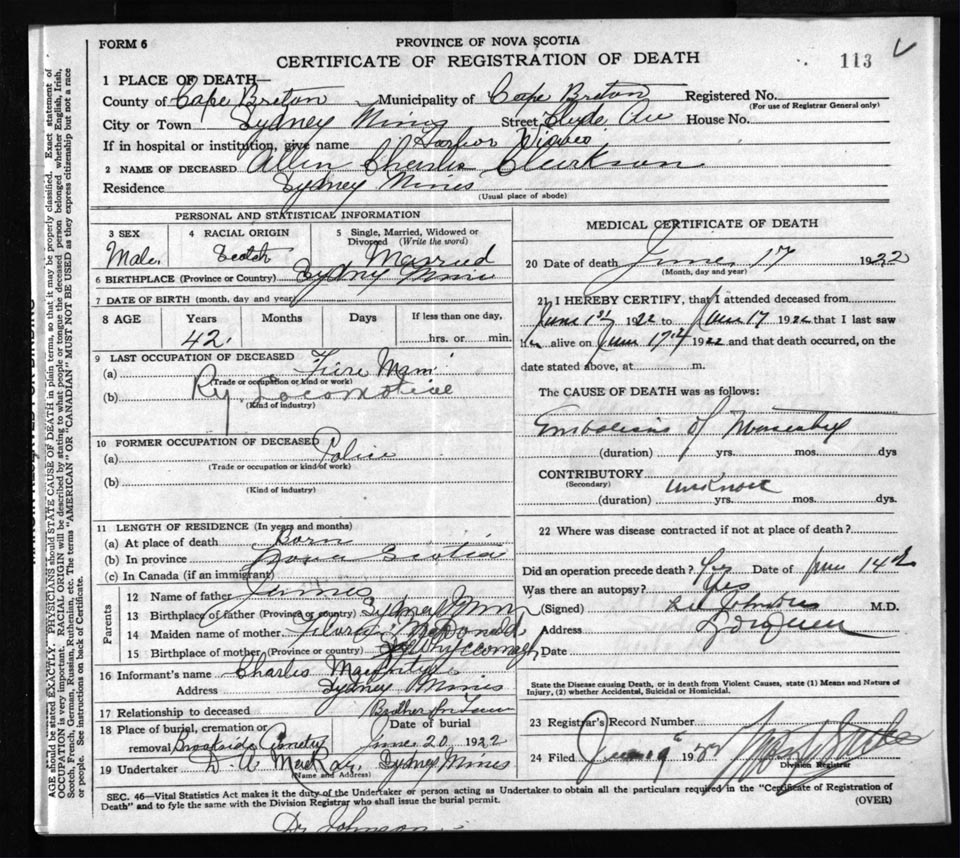 FORM 6
PROVINCE OF NOVA SCOTIA
CERTIFICATE OF REGISTRATION OF DEATH
113
1 PLACE OF DEATH—
County of Cape Breton Municipality of Cape Breton Registered No.
(For use of Registrar General only)
City or Town Sydney Mines Street Clyde Ave House No.
If in hospital or institution, give name Harbor
2 NAME OF DECEASED Charles Clarkson
Residence Sydney Mines
(Usual place of abode)
PERSONAL AND STATISTICAL INFORMATION
3 SEX Male.
4 RACIAL ORIGIN Scotch
5 Single, Married, Widowed or Divorced (Write the word) Married
6 BIRTHPLACE (Province or Country) Sydney Mines
7 DATE OF BIRTH (month, day and year)
8 AGE Years Months Days If less than one day,
42. hrs. or min.
9 LAST OCCUPATION OF DECEASED
(a) Fire Man
(Trade or occupation or kind or work)
(b) Ry. Locomotive
(Kind of industry)
10 FORMER OCCUPATION OF DECEASED
(a) Police
(Trade or occupation or kind of work)
(b)
(Kind of industry)
11 LENGTH OF RESIDENCE (In years and months)
(a) At place of death Born
(b) In province Nova Scotia
(c) In Canada (if an immigrant)
Parents
12 Name of father James
13 Birthplace of father (Province or country) Sydney Mines
14 Maiden name of mother McDonald
15 Birthplace of mother (Province or country) Whycocomagh
16 Informant's name Charles
Address Sydney Mines
17 Relationship to deceased Brother in Law
18 Place of burial, cremation or removal Brookside Cemetry
Date of burial June 20 1922
19 Undertaker D. A. MacKay, Sydney Mines
(Name and Address)
MEDICAL CERTIFICATE OF DEATH
20 Date of death June 17 1922
(Month, day and year)
21 I HEREBY CERTIFY, that I attended deceased from
June 1st 1922 to June 17 1922 that I last saw
alive on June 17th 1922 and that death occurred, on the
date stated above, at m.
The CAUSE OF DEATH was as follows:
Embolism of
(duration) yrs. mos. dys
CONTRIBUTORY
(Secondary)
(duration) yrs. mos. dys.
22 Where was disease contracted if not at place of death?
Did an operation precede death? Yes Date of June 14
Was there an autopsy? Yes
(Signed) M.D.
Address
Date
State the Disease causing Death, or in death from Violent Causes, state (1) Means and Nature of
Injury, (2) whether Accidental, Suicidal or Homicidal.
23 Registrar's Record Number
24 Filed June 19 19
Division Registrar
SEC. 46—Vital Statistics Act makes it the duty of the Undertaker or person acting as Undertaker to obtain all the particulars required in the "Certificate of Registration of
Death" and to fyle the same with the Division Registrar who shall issue the burial permit.
(OVER)
Dr Johnson
AGE should be stated EXACTLY. PHYSICIANS should STATE CAUSE OF DEATH in plain terms, so that it may be properly classified. Exact statement of
OCCUPATION is very important. RACIAL ORIGIN will be described by stating to what people or tongue the deceased person belonged whether English, Irish,
Scotch, French, German, Russian, Ruthenian, etc. The terms "AMERICAN" OR "CANADIAN" MUST NOT BE USED as they express citizenship but not a race
or people. See instructions on back of Certificate.